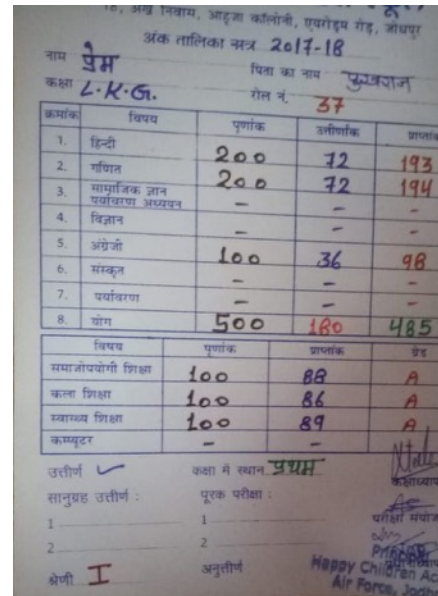 18, अखे निवास, आहूजा कॉलोनी, एयरोड्रम रोड़, जोधपुर
अंक तालिका सत्र 2017-18
नाम प्रेम पिता का नाम पुखराज
कक्षा L.K.G. रोल नं. 37
क्रमांक विषय पूर्णांक उत्तीर्णांक प्राप्तांक
1. हिन्दी 200 72 193
2. गणित 200 72 194
3. सामाजिक ज्ञान पर्यावरण अध्ययन - - -
4. विज्ञान - - -
5. अंग्रेजी 100 36 98
6. संस्कृत - - -
7. पर्यावरण - - -
8. योग 500 180 485
विषय पूर्णांक प्राप्तांक ग्रेड
समाजोपयोगी शिक्षा 100 88 A
कला शिक्षा 100 86 A
स्वास्थ्य शिक्षा 100 89 A
कम्प्यूटर - -
उत्तीर्ण ✓ कक्षा में स्थान प्रथम
कक्षाध्याप
सानुग्रह उत्तीर्ण : पूरक परीक्षा :
1 1 परीक्षा संयोज
2 2
श्रेणी I अनुत्तीर्ण
Happy Children Ac
Air Force, Jodh